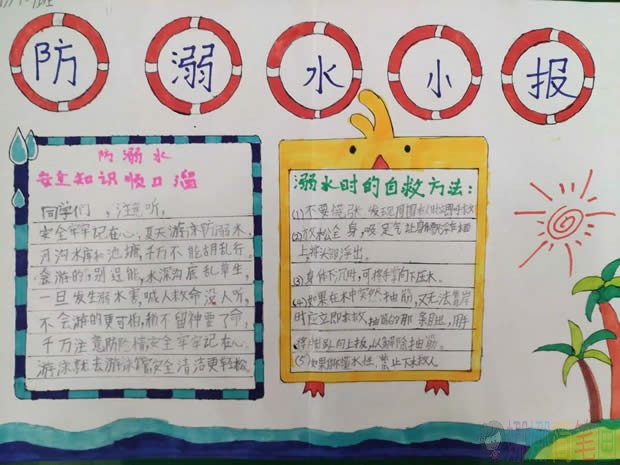 班
防 溺 水 小 报
防溺水
安全知识顺口溜
同学们，注意听，
安全牢牢记在心，夏天游泳防溺水，
河沟水库和池塘，千万不能胡乱行。
会游的别逞能，水深沟底乱草生，
一旦发生溺水害，喊人救命没人听，
不会游的更可怕，稍不留神要了命，
千万注意防险情安全牢牢记在心。
游泳就去游泳馆安全清洁更轻松
溺水时的自救方法：
(1)不要慌张 发现周围有人时
(2)放松全身，吸足气让身体
上将头部浮出。
(3)身体下沉时，可将手掌向下压水。
(4)如果在水中突然抽筋，又无法靠岸
时应立即求救
将 向上扳，以解除抽筋。
(5)如果不懂水性，禁止下水救人